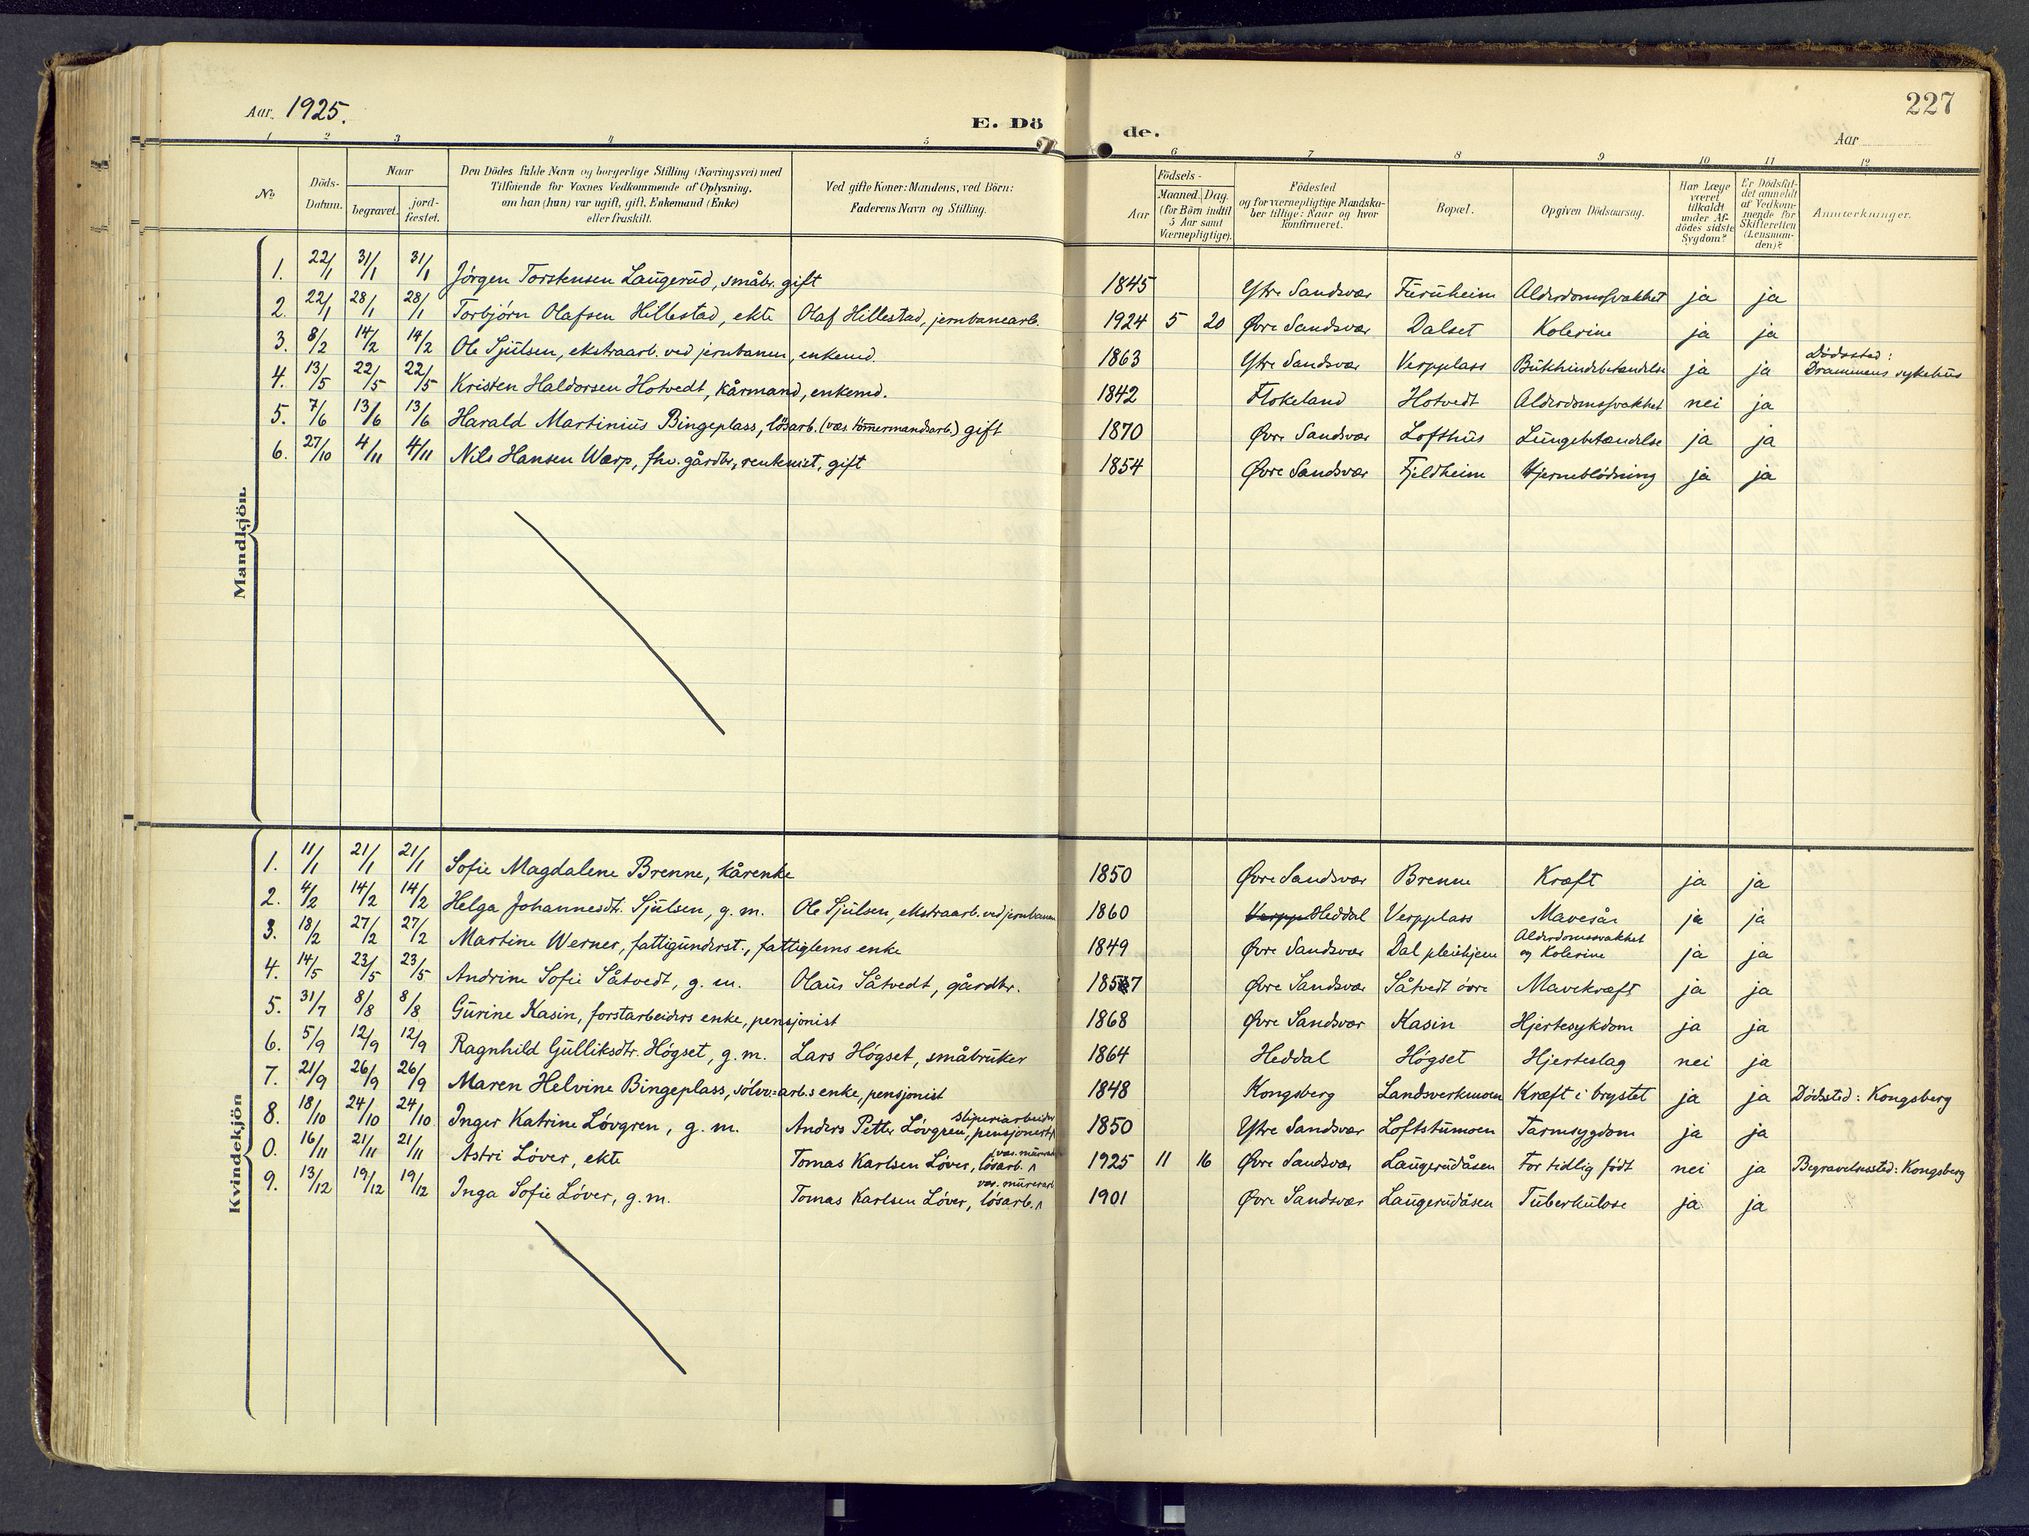 Aar 1925.
E. Döde.
227
Aar
1 2 3 4 5 6 7 8 9 10 11 12
No. | Döds-Datum. | Naar begravet. | jordfæstet. | Den Dödes fulde Navn og borgerlige Stilling (Næringsvei) med Tilföiende for Voxnes Vedkommende af Oplysning, om han (hun) var ugift, gift, Enkemand (Enke) eller fraskilt. | Ved gifte Koner: Mandens, ved Börn: Faderens Navn og Stilling. | Födsels- Aar | Maaned. | Dag. (for Börn indtil 5 Aar samt Værnepligtige). | Födested og for værnepligtige Mandskaber tillige: Naar og hvor konfirmeret. | Bopæl. | Opgiven Dödsaarsag. | Har Læge været tilkaldt under Afdödes sidste Sygdom? | Er Dödsfaldet anmeldt af Vedkommende for Skifteretten (Lensmanden)? | Anmærkninger.
Mandkjön.
1. 22/1 31/1 31/1 Jørgen Torstensen Laugerud, småbr. gift 1845 Ytre Sandsvær Furuheim Alderdomssvakhet ja ja
2. 22/1 28/1 28/1 Torbjørn Olafsen Hillestad, ekte Olaf Hillestad, jernbanearb. 1924 5 20 Øvre Sandsvær Dalset Kolerine ja ja
3. 8/2 14/2 14/2 Ole Sjulsen, ekstraarb. ved jernbanen, enkemd. 1863 Ytre Sandsvær Verpplass Bukhindebetændelse ja ja Dødssted: Drammens sykehus
4. 13/5 22/5 22/5 Kristen Haldorsen Hotvedt, kårmand, enkemd. 1842 Flokeland Hotvedt Alderdomssvakhet nei ja
5. 7/6 13/6 13/6 Harald Martinius Bingeplass, løsarb. (væs. tømmermandsarb.) gift 1870 Øvre Sandsvær Lofthus Lungebetændelse ja ja
6. 27/10 4/11 4/11 Nils Hansen Wærp, fhv. gårdbr., rentenist, gift 1854 Øvre Sandsvær Fjeldheim Hjerneblödning ja ja
Kvindekjön
1. 11/1 21/1 21/1 Sofie Magdalene Brenne, kårenke 1850 Øvre Sandsvær Brenne Kræft ja ja
2. 4/2 14/2 14/2 Helga Johannesdt. Sjulsen, g. m. Ole Sjulsen, ekstraarb. ved jernbanen 1860 Heddal Verpplass Mavesår ja ja
3. 18/2 27/2 27/2 Martine Werner, fattigunderst., fattiglems enke 1849 Øvre Sandsvær Dal pleiehjem Alderdomssvakhet og Kolerine ja ja
4. 14/5 23/5 23/5 Andrine Sofie Såtvedt, g. m. Olaus Såtvedt, gårdbr. 1857 Øvre Sandsvær Såtvedt övre Mavekræft ja ja
5. 31/7 8/8 8/8 Gurine Kasin, forstarbeiders enke, pensjonist 1868 Øvre Sandsvær Kasin Hjertesykdom ja ja
6. 5/9 12/9 12/9 Ragnhild Gulliksdtr. Högset, g. m. Lars Högset, småbruker 1864 Heddal Högset Hjerteslag nei ja
7. 21/9 26/9 26/9 Maren Helvine Bingeplass, sölvv.arb.s enke, pensjonist 1848 Kongsberg Landsverkmoen Kræft i brystet ja ja Dödssted: Kongsberg
8. 18/10 24/10 24/10 Inger Katrine Lövgren, g. m. Anders Petter Lövgren, pensjonert sliperiarbeider 1850 Ytre Sandsvær Loftstumoen Tarmsygdom ja ja
0. 16/11 21/11 21/11 Astri Löver, ekte Tomas Karlsen Löver, lösarb. 1925 11 16 Øvre Sandsvær Laugerudåsen For tidlig födt nei ja Begravelsessted: Kongsberg
9. 13/12 19/12 19/12 Inga Sofie Löver, g. m. Tomas Karlsen Löver, lösarb. væs. murerarb. 1901 Øvre Sandsvær Laugerudåsen Tuberkulose ja ja